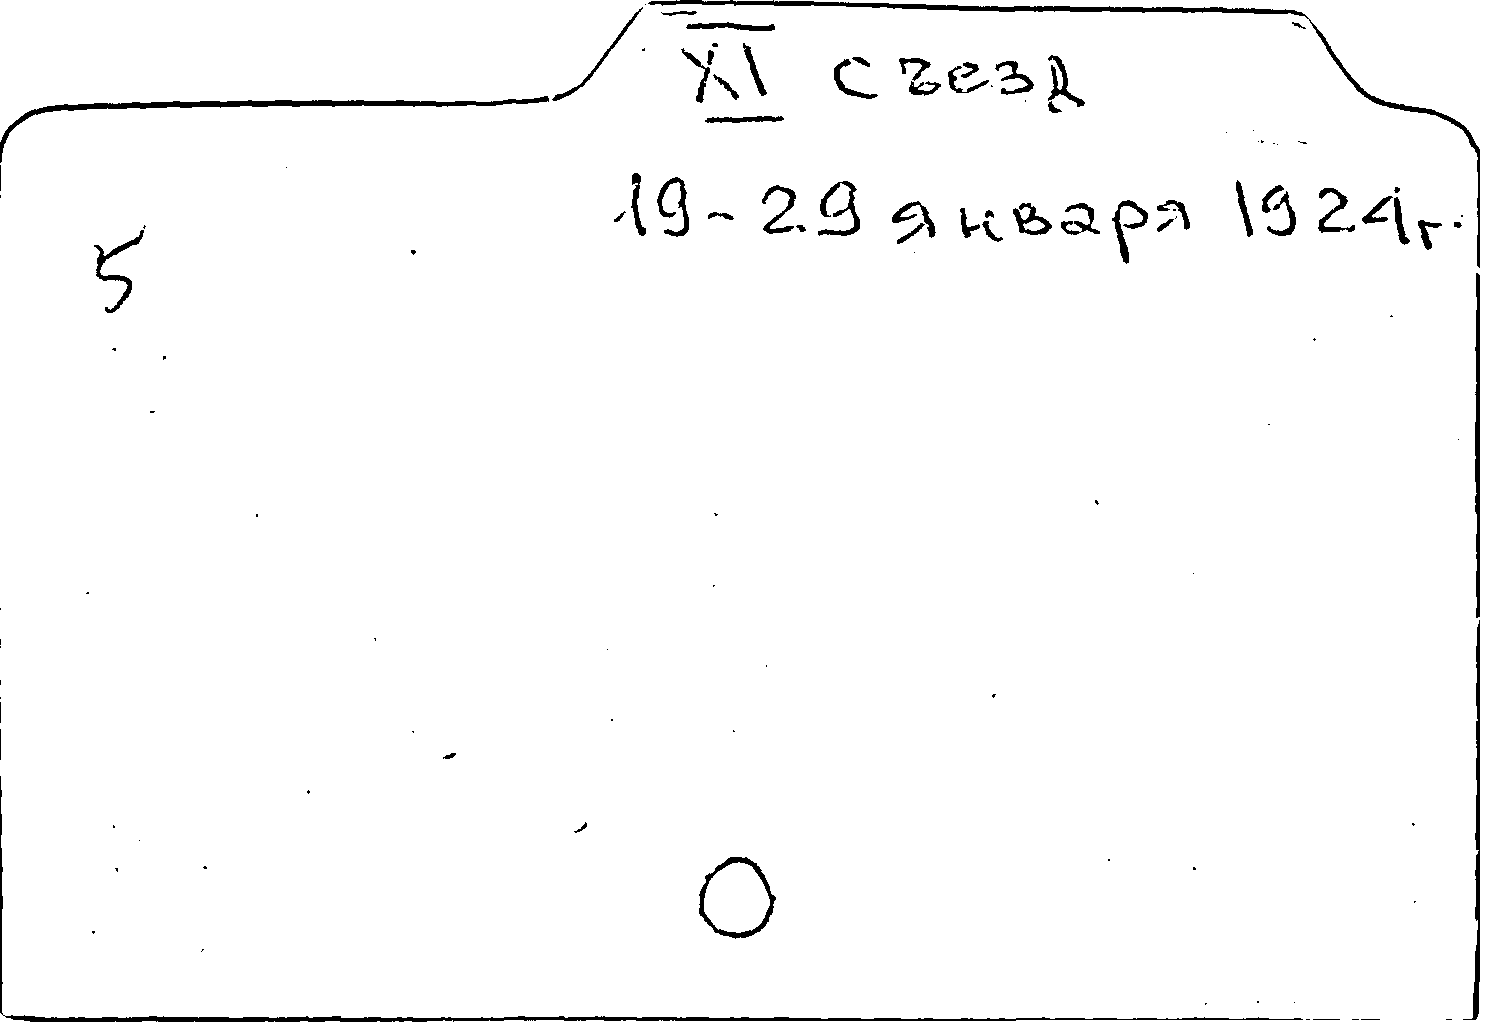 XI съезд
19-29 января 1924г.
5